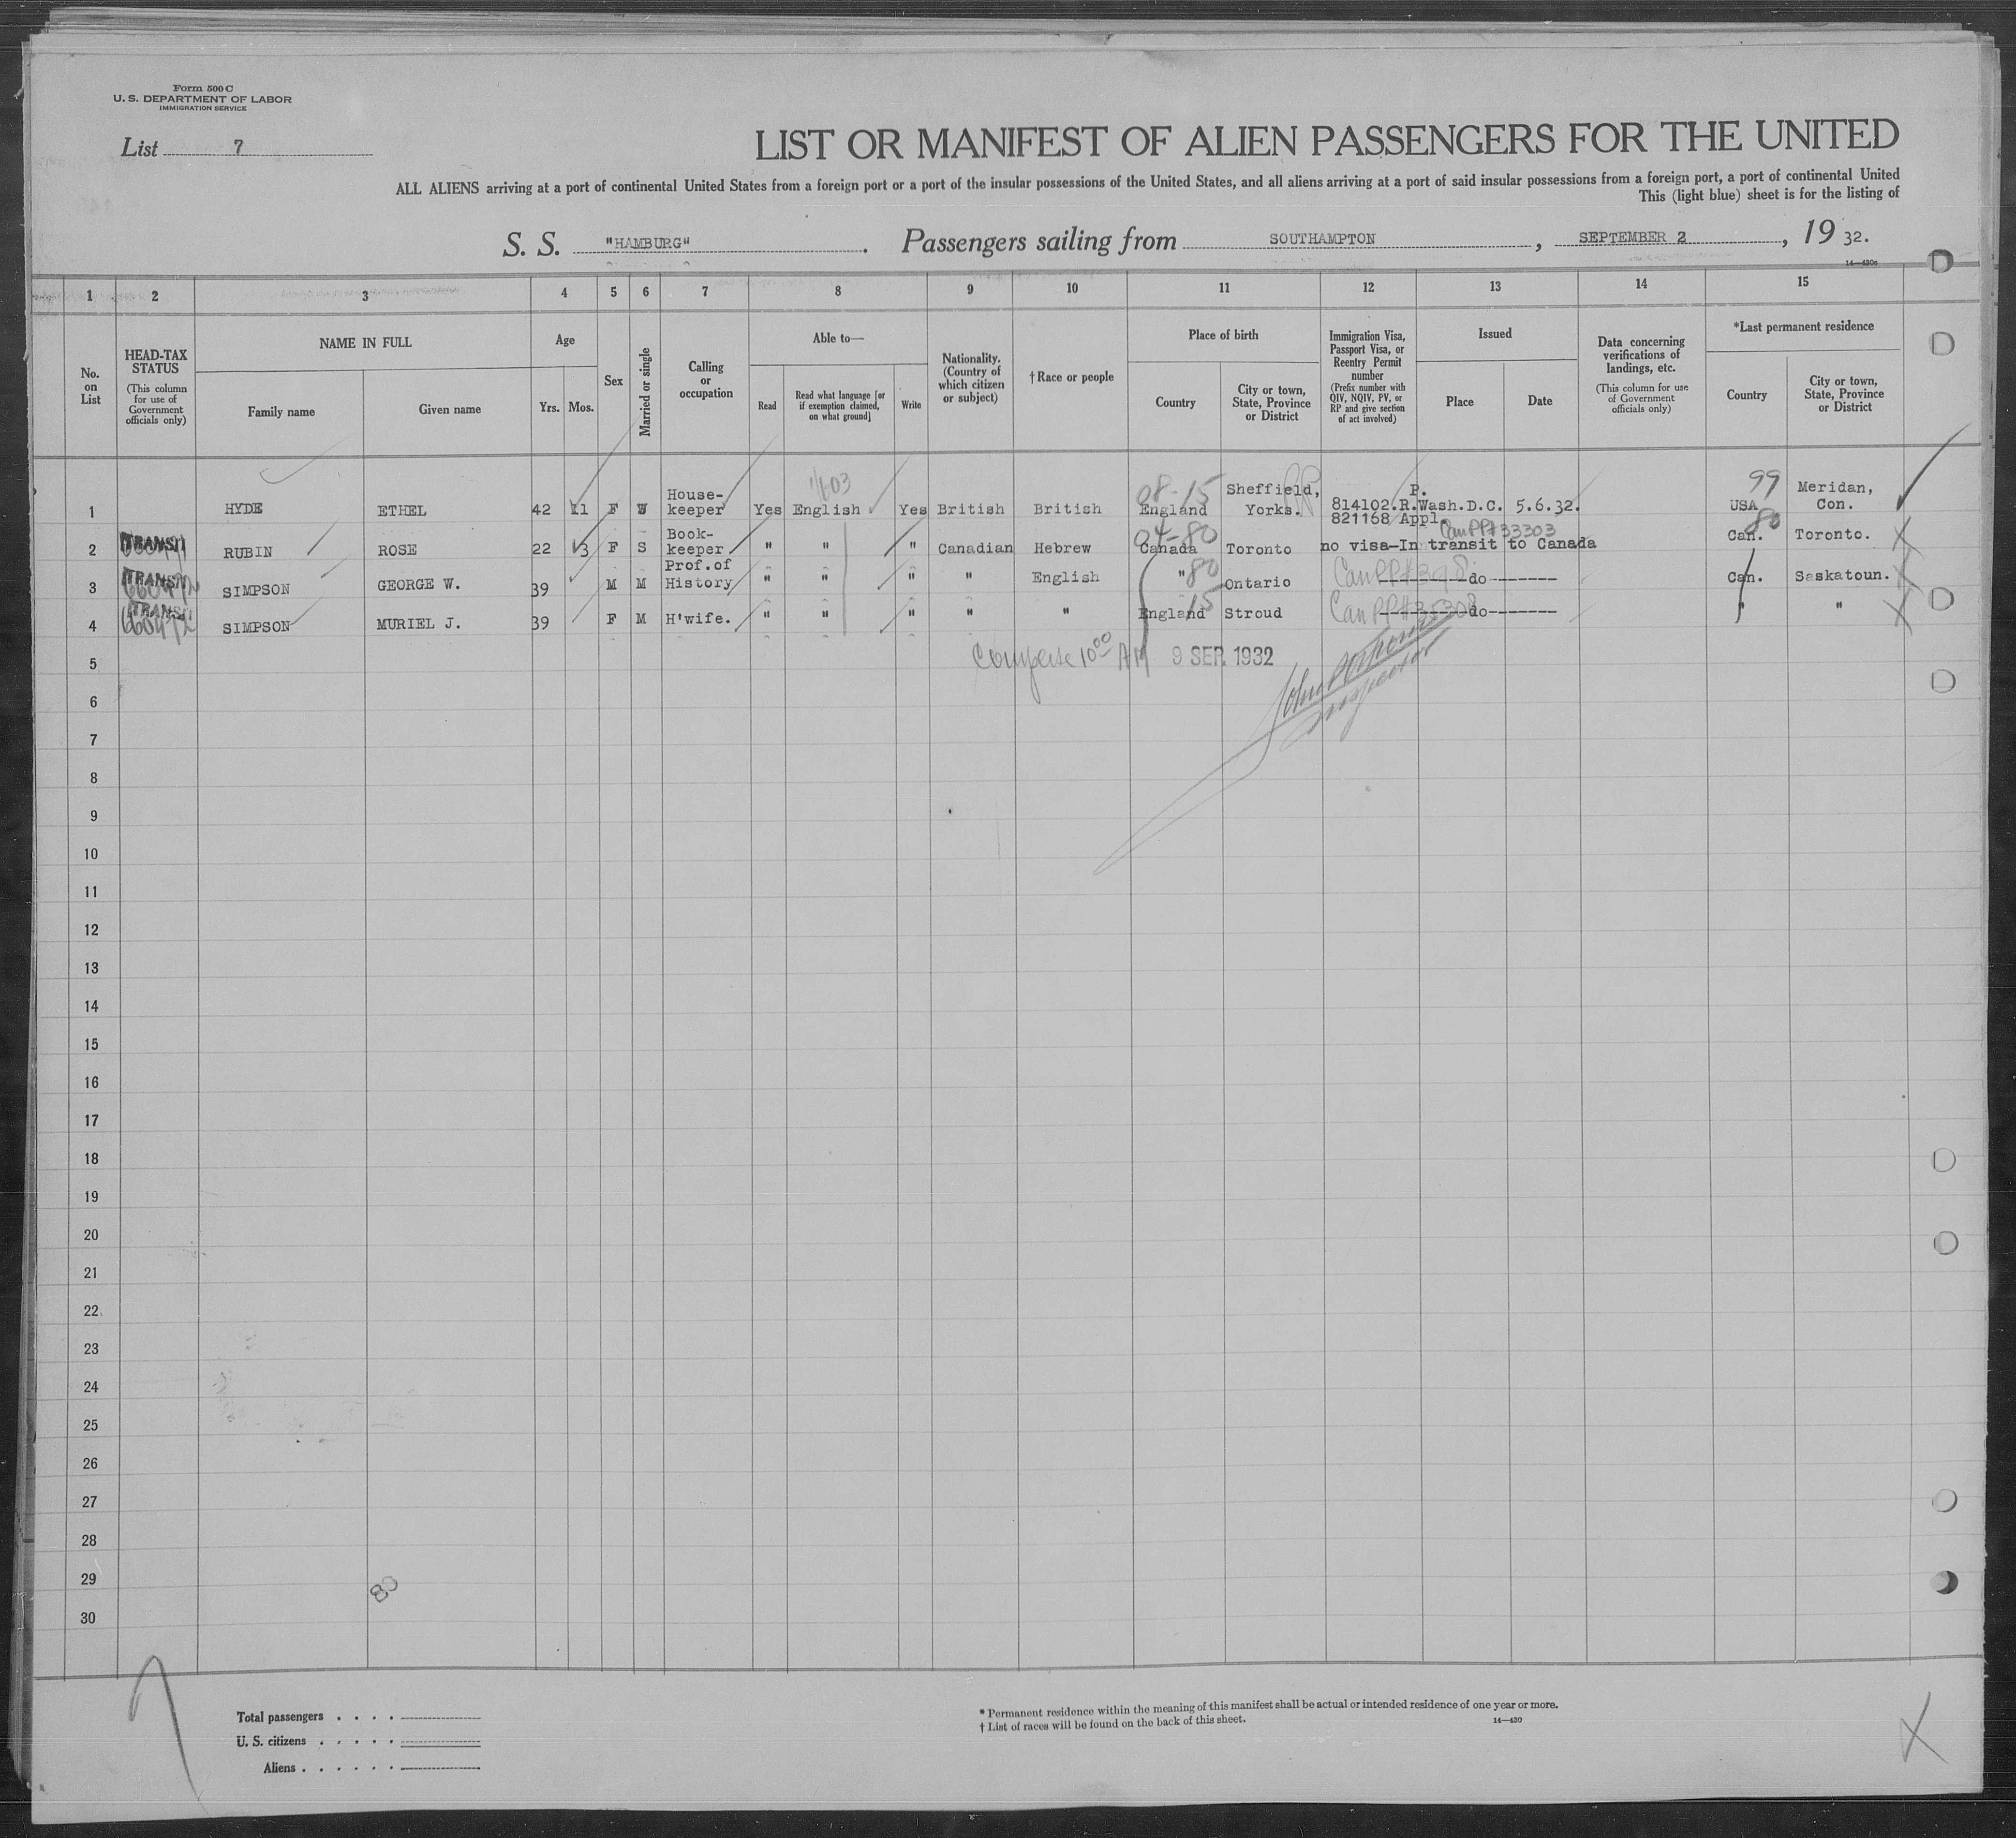 Form 500 C
U. S. DEPARTMENT OF LABOR
IMMIGRATION SERVICE
List 7
LIST OR MANIFEST OF ALIEN PASSENGERS FOR THE UNITED
ALL ALIENS arriving at a port of continental United States from a foreign port or a port of the insular possessions of the United States, and all aliens arriving at a port of said insular possessions from a foreign port, a port of continental United
This (light blue) sheet is for the listing of
S. S. "HAMBURG". Passengers sailing from SOUTHAMPTON, SEPTEMBER 2, 19 32.
14—430c
1 2 3 4 5 6 7 8 9 10 11 12 13 14 15
No. on List
HEAD-TAX STATUS (This column for use of Government officials only)
NAME IN FULL
Family name Given name
Age
Yrs. Mos.
Sex
Married or single
Calling or occupation
Able to—
Read Read what language [or if exemption claimed, on what ground] Write
Nationality. (Country of which citizen or subject)
† Race or people
Place of birth
Country City or town, State, Province or District
Immigration Visa, Passport Visa, or Reentry Permit number (Prefix number with QIV, NQIV, PV, or RP and give section of act involved)
Issued
Place Date
Data concerning verifications of landings, etc. (This column for use of Government officials only)
*Last permanent residence
Country City or town, State, Province or District
1 HYDE ETHEL 42 11 F W House-keeper Yes English Yes British British 08-15 England Sheffield, Yorks. RP 814102.R.P. Wash.D.C. 5.6.32. 99 USA Meridan, Con.
821168 Appl.
2 TRANSIT RUBIN ROSE 22 3 F S Book-keeper " " " Canadian Hebrew 04-80 Canada Toronto CanPP#33303 no visa-In transit to Canada 80 Can. Toronto. X
3 TRANSIT SIMPSON GEORGE W. 39 M M Prof.of History " " " " English " 80 Ontario CanPP# -------do------- Can. Saskatoun. X
4 TRANSIT SIMPSON MURIEL J. 39 F M H'wife. " " " " " England 15 Stroud CanPP# -------do------- " " X
5 10 00 AM 9 SEP. 1932
Inspector
6
7
8
9
10
11
12
13
14
15
16
17
18
19
20
21
22
23
24
25
26
27
28
29
80
30
Total passengers
U. S. citizens
Aliens
* Permanent residence within the meaning of this manifest shall be actual or intended residence of one year or more.
† List of races will be found on the back of this sheet.
14—430
X